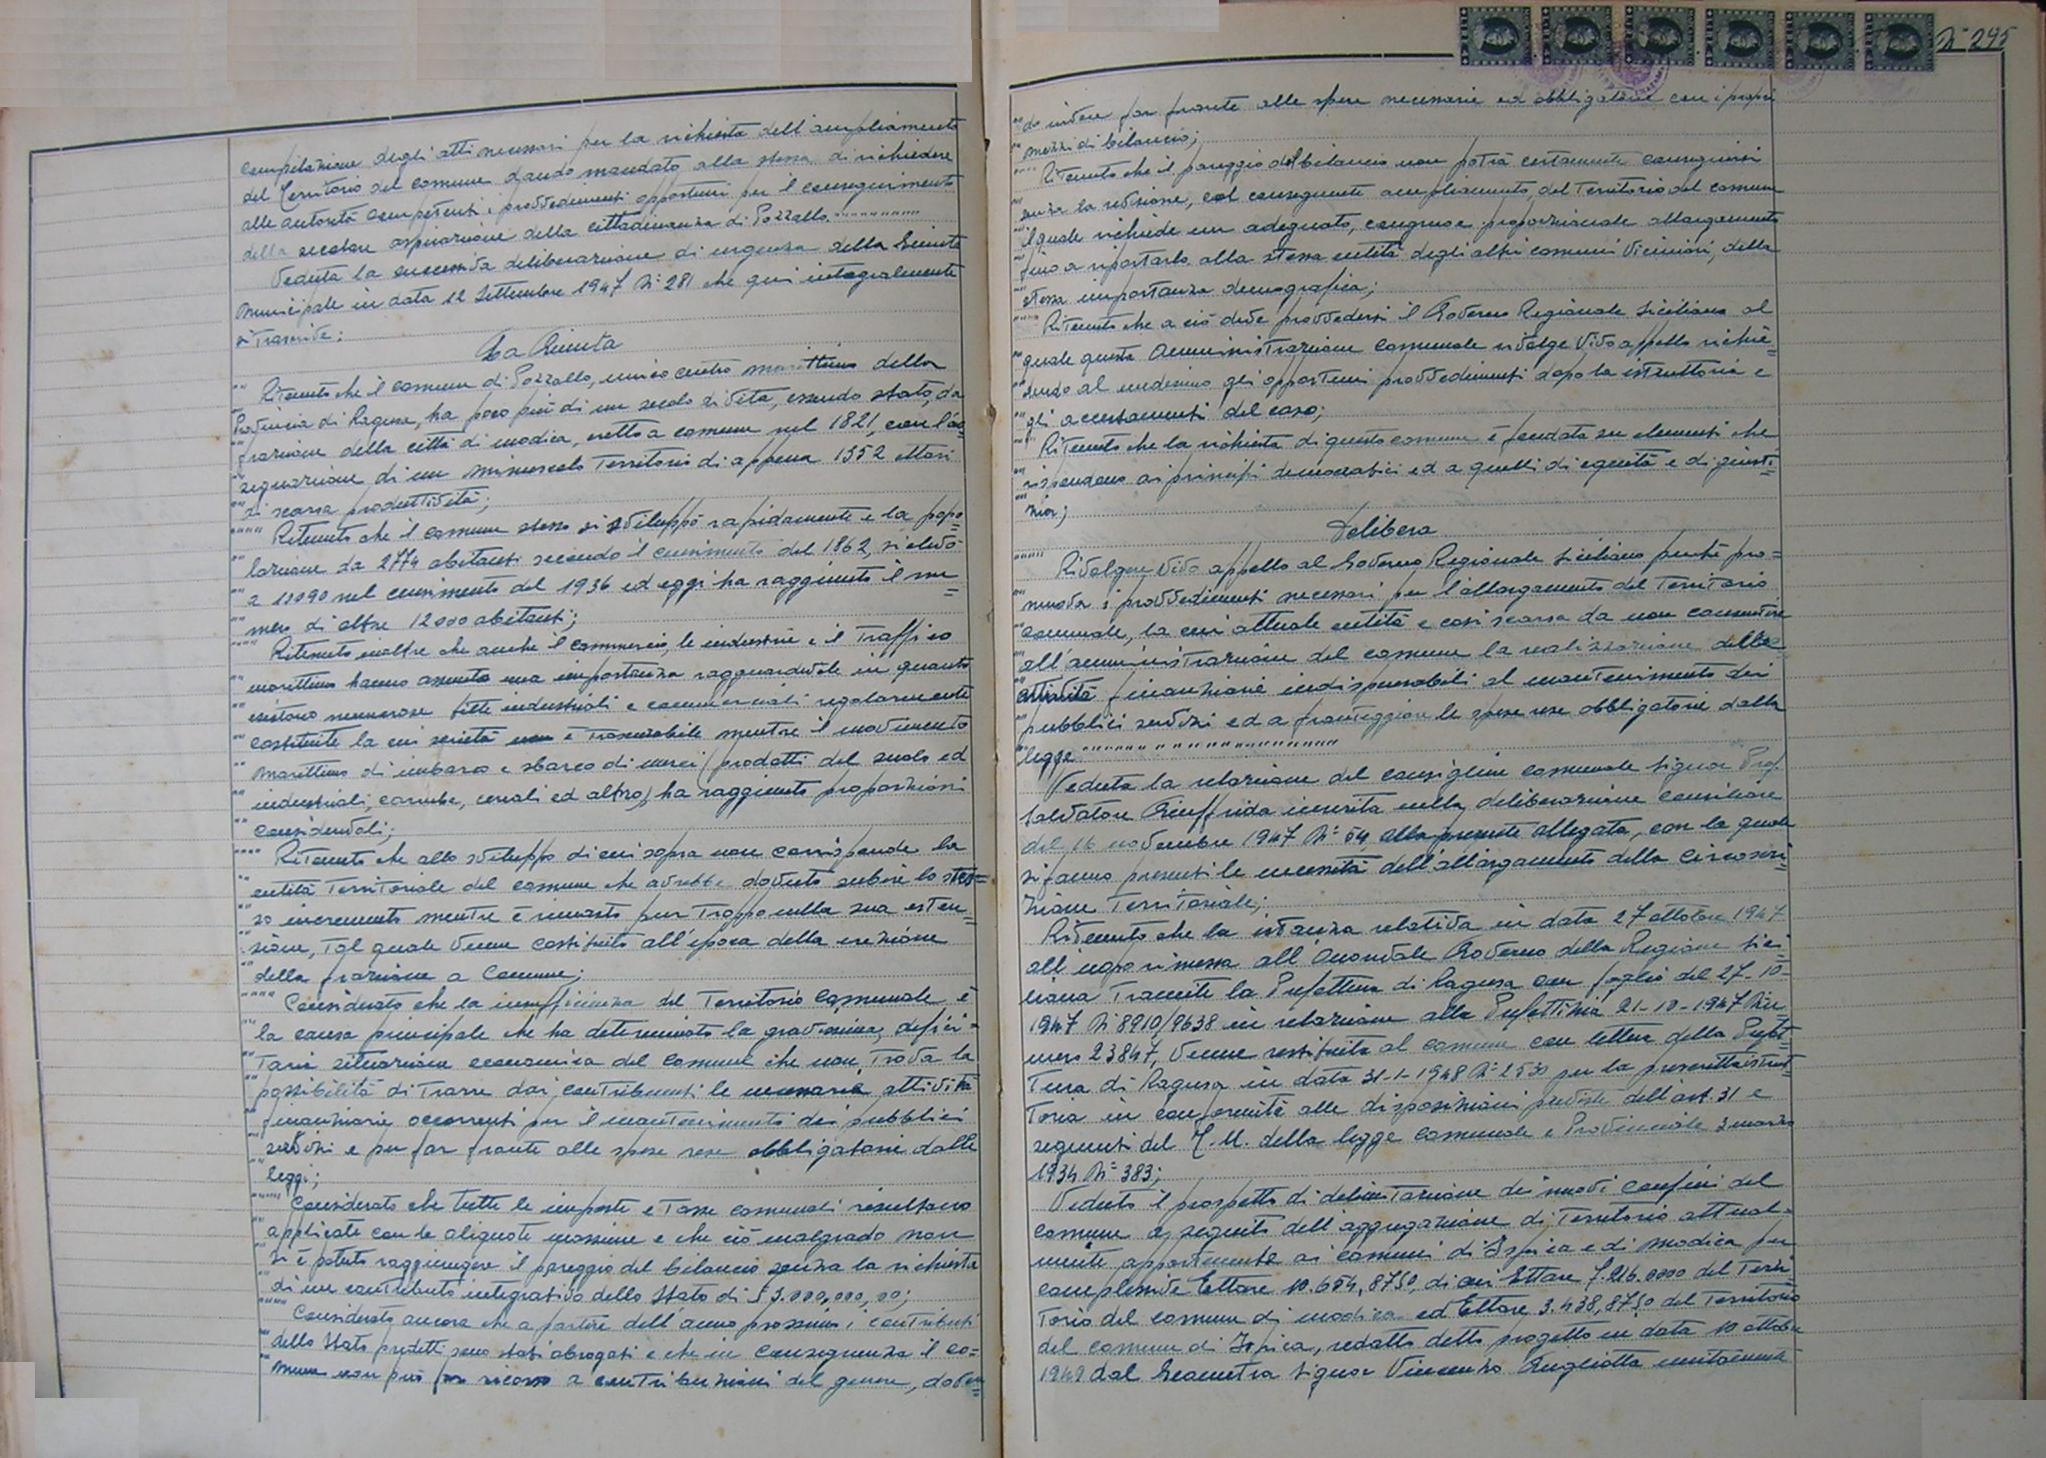 compilazione degli atti necessari per la richiesta dell'ampliamento
del Territorio del comune dando mandato alla stessa di richiedere
alle autorità competenti i provvedimenti opportuni per il conseguimento
della secolare aspirazione della cittadinanza di Pozzallo.
Veduta la successiva deliberazione di urgenza della Giunta
Municipale in data 12 Settembre 1947 N° 281 che qui integralmente
si trascrive:
La Giunta
Ritenuto che il comune di Pozzallo, unico centro marittimo della
Provincia di Ragusa, ha poco più di un secolo di vita, essendo stato, da
frazione della città di Modica, eretto a comune nel 1821, con l'as=
segnazione di un minuscolo Territorio di appena 1352 ettari
di scarsa produttività;
Ritenuto che il comune stesso si sviluppò rapidamente e la popo=
lazione da 2774 abitanti secondo il censimento del 1862, si elevò
a 11090 nel censimento del 1936 ed oggi ha raggiunto il nu=
mero di oltre 12000 abitanti;
Ritenuto inoltre che anche il commercio, le industrie e il Traffico
marittimo hanno assunto una importanza ragguardevole in quanto
esistono numerose Ditte industriali e commerciali regolarmente
costituite la cui serietà è mentre il movimento
marittimo di imbarco e sbarco di merci (prodotti del suolo ed
industriali, carrube, cereali ed altro) ha raggiunto proporzioni
considerevoli;
Ritenuto che allo sviluppo di cui sopra non corrisponde la
entità Territoriale del comune che avrebbe dovuto subire lo stes=
so incremento mentre è rimasto pur Troppo nella sua esten=
sione, Tal quale venne costituito all'epoca della erezione
della frazione a Comune;
Considerato che la insufficienza del Territorio Comunale è
la causa principale che ha determinato la gravissima, defici=
taria situazione economica del Comune che non Trova la
possibilità di Trarre dai contribuenti le necessarie attività
finanziarie occorrenti per il mantenimento dei pubblici
servizi e per far fronte alle spese rese obbligatorie dalle
leggi;
Considerato che tutte le imposte e Tasse comunali risultano
applicate con le aliquote massime e che ciò malgrado non
si è potuto raggiungere il pareggio del bilancio senza la richiesta
di un contributo integrativo dello Stato di £ 3.000.000,00;
Considerato ancora che a partire dall'anno prossimo i contributi
dello Stato predetti sono stati abrogati e che in conseguenza il co=
mune non può far ricorso a contribuzioni del genere, doven=
N° 295
do invece far fronte alle spese necessarie ed obbligatorie con i propri
mezzi di bilancio;
Ritenuto che il pareggio del bilancio non potrà certamente conseguirsi
senza la revisione, col conseguente ampliamento, del Territorio del comune
il quale richiede un adeguato, congruo e proporzionale allargamento
fino a riportarlo alla stessa entità degli altri comuni Viciniori, della
stessa importanza demografica;
Ritenuto che a ciò deve provvedersi il Governo Regionale Siciliano al
quale questa Amministrazione Comunale rivolge Vivo appello richie=
dendo al medesimo gli opportuni provvedimenti dopo la istruttoria e
gli accertamenti del caso;
Ritenuto che la richiesta di questo comune è fondata su elementi che
rispondono ai principi democratici ed a quelli di equità e di giusti=
zia;
Delibera
Rivolgere Vivo appello al Governo Regionale Siciliano perché pro=
muova i provvedimenti necessari per l'allargamento del Territorio
Comunale, la cui attuale entità è così scarsa da non consentire
all'amministrazione del comune la realizzazione delle
attività finanziarie indispensabili al mantenimento dei
pubblici servizi ed a fronteggiare le spese rese obbligatorie dalla
legge.
Veduta la relazione del consigliere comunale Signor Prof.
Salvatore Giuffrida inserita nella deliberazione consiliare
del 16 novembre 1947 N° 54, alla presente allegata, con la quale
si fanno presenti le necessità dell'allargamento della Circoscri=
zione Territoriale;
Ritenuto che la istanza relativa in data 27 ottobre 1947
all'uopo rimessa all'Onorevole Governo della Regione Sici=
liana Tramite la Prefettura di Ragusa con foglio del 27-10-
1947 N° 8910/9638 in relazione alla Prefettizia 21-10-1947 Nu=
mero 23847, venne restituita al comune con lettera della Prefet=
tura di Ragusa in data 31-1-1948 N° 2530 per la prescritta istrut=
toria in conformità alle disposizioni previste dell'art. 31 e
seguenti del T.U. della legge Comunale e Provinciale 3 marzo
1934 N° 383;
Veduto il prospetto di delimitazione dei nuovi confini del
Comune a seguito dell'aggregazione di Territorio attual=
mente appartenente ai comuni di Ispica e di Modica per
complessive Ettare 10.654,8750, di cui Ettare 7.216.0000 del Terri
Torio del comune di Modica ed Ettare 3.438,8750 del Territorio
del comune di Ispica, redatto detto progetto in data 10 ottobre
1949 dal Geometra Signor Vincenzo unitamente